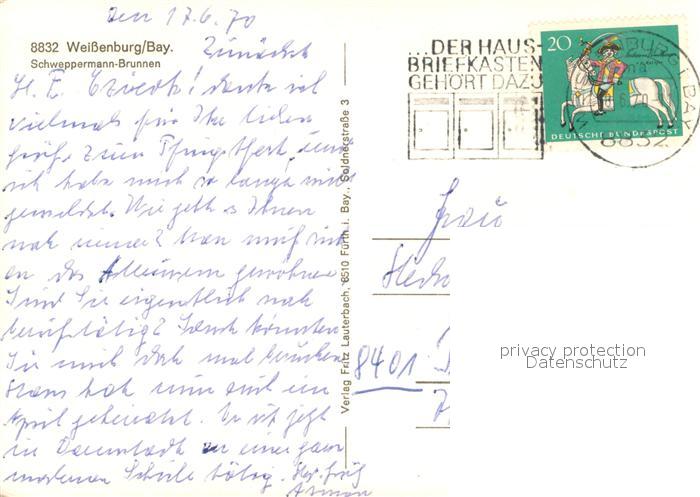 den 17.6.70
8832 Weißenburg/Bay.
Schweppermann-Brunnen
Zunächst
danke ich
vielmals für Ihre lieben
Grüße zum Pfingstfest, denn
ich habe mich so lange nicht
gemeldet. Wie geht es Ihnen
noch immer? Man muß sich
an das Alleinsein gewöhnen
Sind Sie eigentlich noch
berufstätig? Sonst könnten
Sie mich doch mal besuchen
Hans hat nun seit im
April geheiratet. Er ist jetzt
in Darmstadt an einer ganz
modernen Schule tätig.
Verlag Fritz Lauterbach, 8510 Fürth i. Bay., Soldnerstraße 3
...DER HAUS-
BRIEFKASTEN
GEHÖRT DAZU
20
DEUTSCHE BUNDESPOST
8832
Frau
8401
privacy protection
Datenschutz